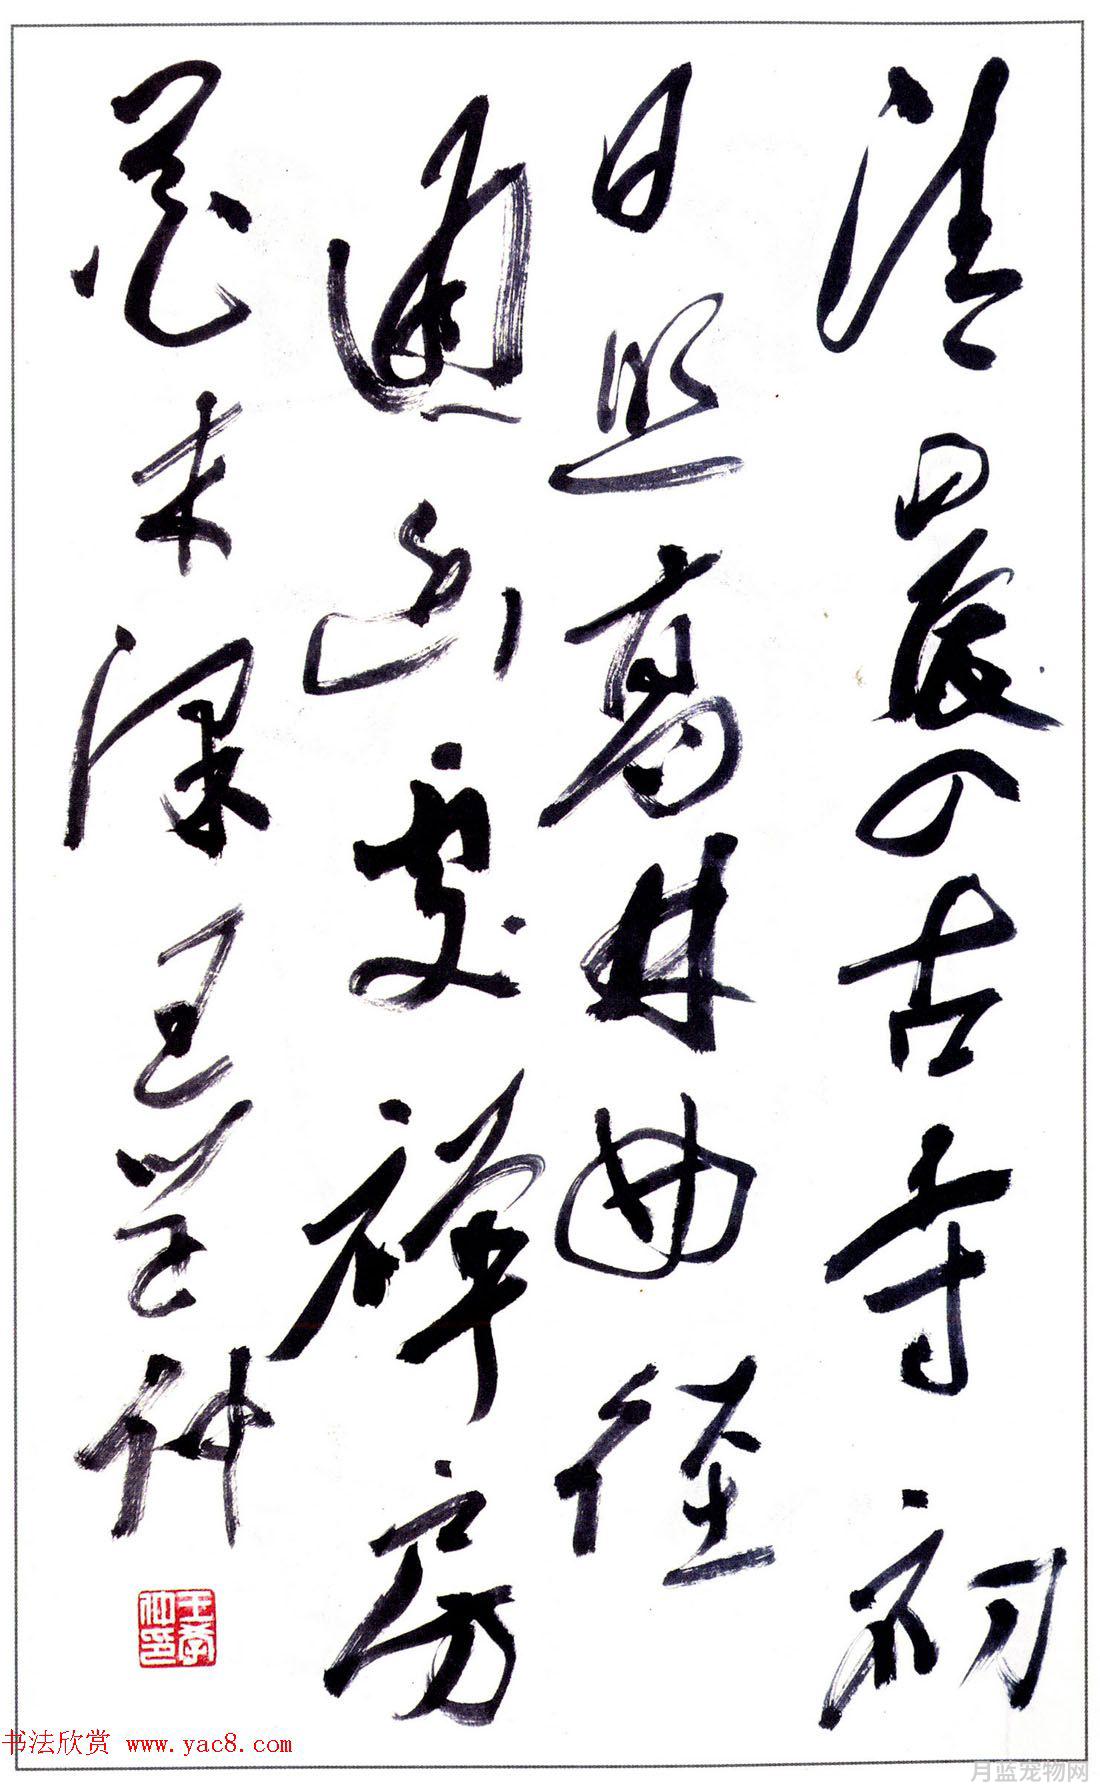 清晨入古寺初
日照高林曲径
通幽处禅房
花木深王学仲
王学仲印
书法欣赏 www.yac8.com
月蓝宠物网